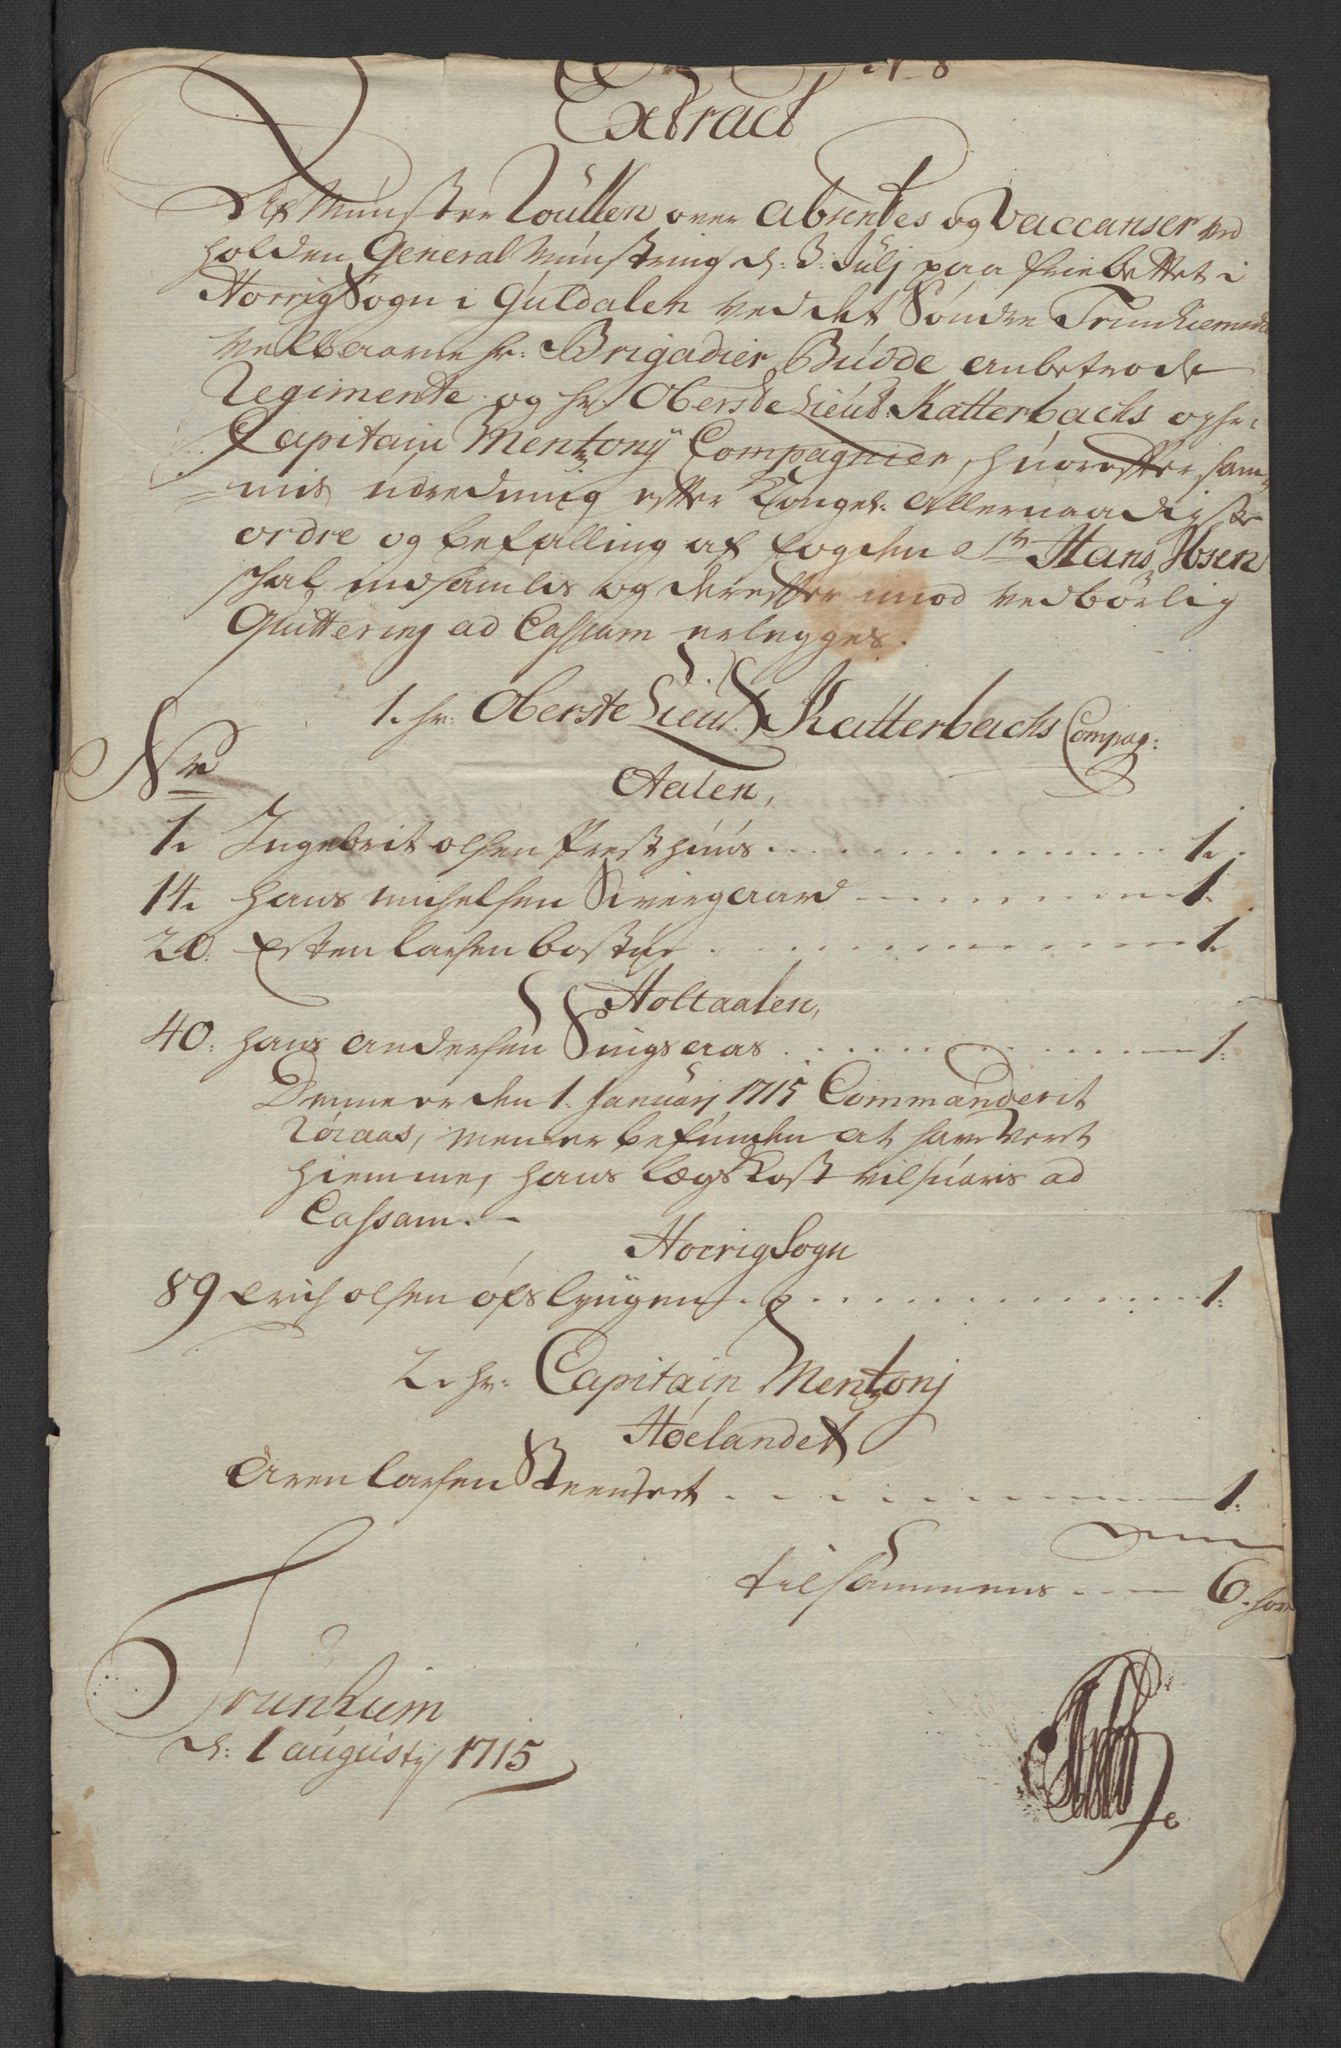 N 8
Extract
Af Münster Roullen over absentes og Vaccanser ved
holden General Münstring d: 3: Julj paa Priebettet i
Horrig Sogn i Guldalen ved det Söndre Trundhiemske
Velbaarne hr: Brigadier Budde anbetrode
Regimente og hr: Oberste Lieut: Katterbachs og hr:
Capitain Mentzonÿ Compagnier, huorefter sam„
mis udredning efter Kongel: allernaadigste
ordre og befalling af fogden Sr Hans Ibsen
skal indsamlis og derefter imod vedbörlig
Quittering ad Cassam erlegges.
1. hr: Oberste Lieut: Katterbachs Compag:
No
Aalen,
1. Ingebrit olsen Presthuus . . . 1.
14. hans michelsen Kirregaard . . . 1.
20. Esten larsen bostÿe . . . 1.
Holtaalen,
40: hans andersen Singsaas . . . 1:
Denne er den 1. Januarj 1715 Commanderit
Röraas, men er befunden at have veret
hiemme, hans lægs Kost vil suaris ad
Cassam. -
Horrig Sogn
89 Erich olsen ofs lÿngen . . . 1:
2. hr: Capitain Mentzonj
Höelandet
Aren larsen . . . 1:
tilsammens . . . 6.
Trunhiem
d: 1 augustij 1715